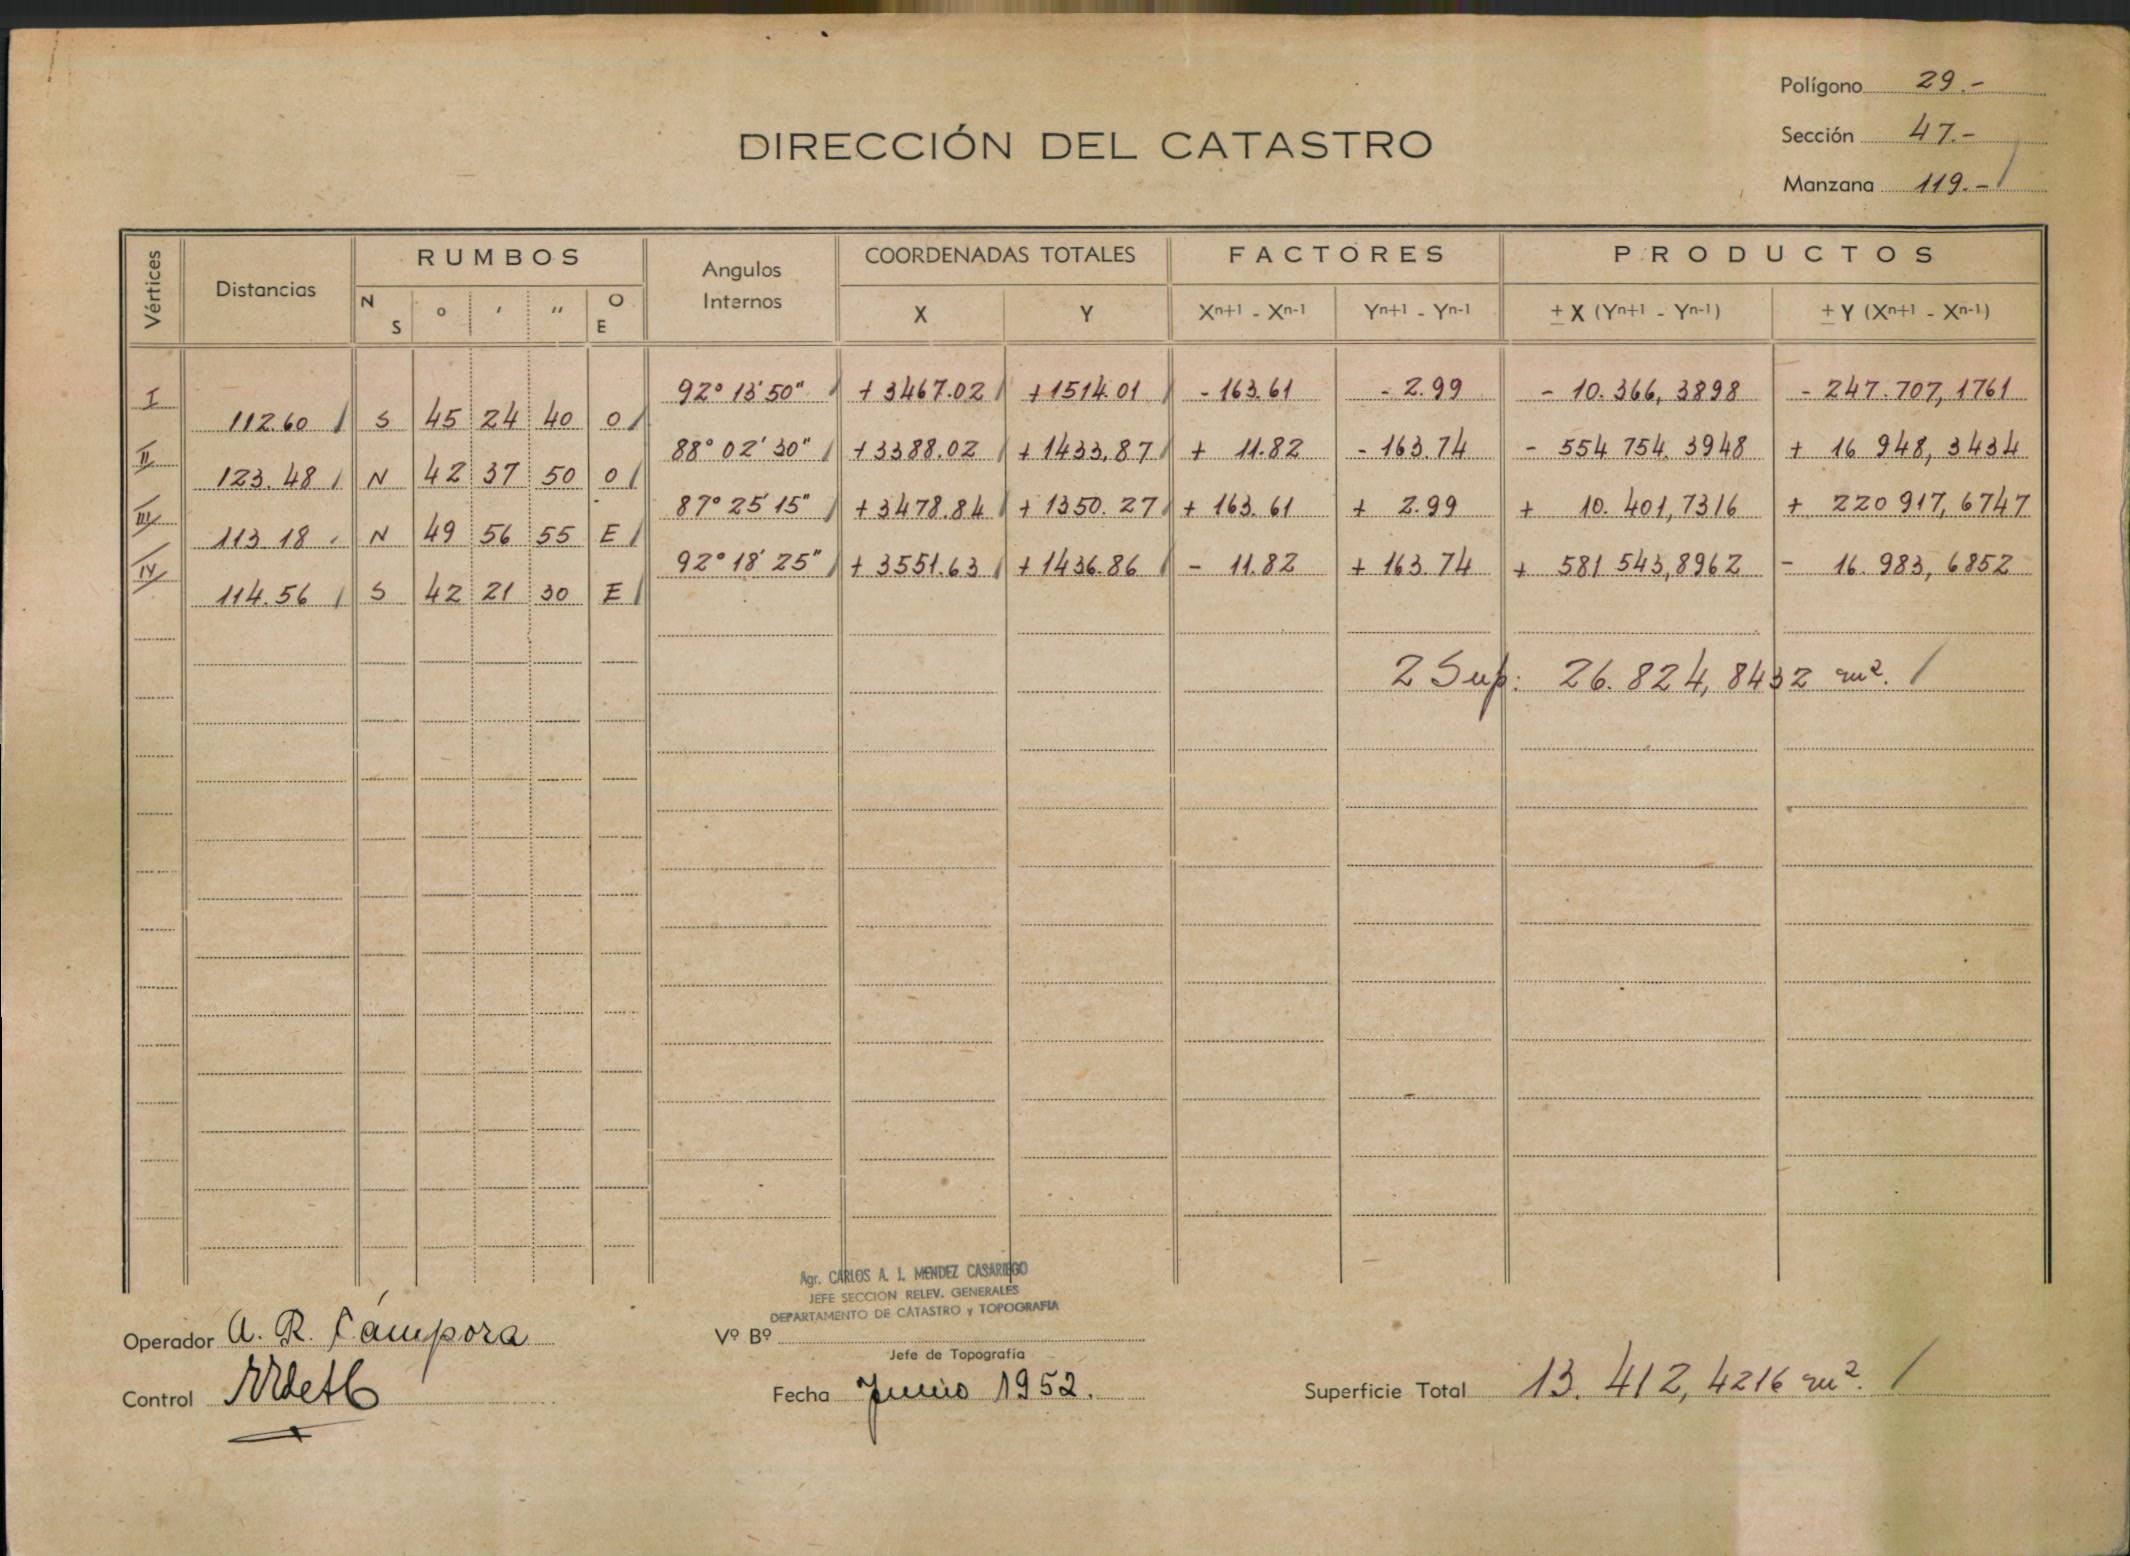 Polígono 29.-
DIRECCIÓN DEL CATASTRO
Sección 47.-
Manzana 119.-
Vértices Distancias RUMBOS Angulos Internos COORDENADAS TOTALES FACTORES PRODUCTOS
N S ° ' " O E X Y Xn+1 - Xn-1 Yn+1 - Yn-1 ± X (Yn+1 - Yn-1) ± Y (Xn+1 - Xn-1)
I 92° 13' 50" + 3467.02 + 1514.01 - 163.61 - 2.99 - 10.366,3898 - 247.707,1761
112.60 S 45 24 40 O
II 88° 02' 30" + 3388.02 + 1433,87 + 11.82 - 163.74 - 554 754.3948 + 16 948,3434
123.48 N 42 37 50 O
III 87° 25' 15" + 3478.84 + 1350.27 + 163.61 + 2.99 + 10.401,7316 + 220 917,6747
113.18 N 49 56 55 E
IV 92° 18' 25" + 3551.63 + 1436.86 - 11.82 + 163.74 + 581 543,8962 - 16.983,6852
114.56 S 42 21 30 E
2 Sup: 26.824,8432 m².
Agr. CARLOS A. J. MENDEZ CASARIEGO
JEFE SECCION RELEV. GENERALES
DEPARTAMENTO DE CATASTRO y TOPOGRAFIA
Operador A. R. Cámpora
Vº Bº
Jefe de Topografía
Control
Fecha Junio 1952.
Superficie Total 13.412,4216 m².